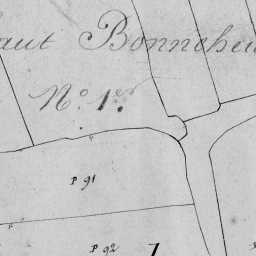 aut Bonneheu
N.º 1.er
P 91
P 92